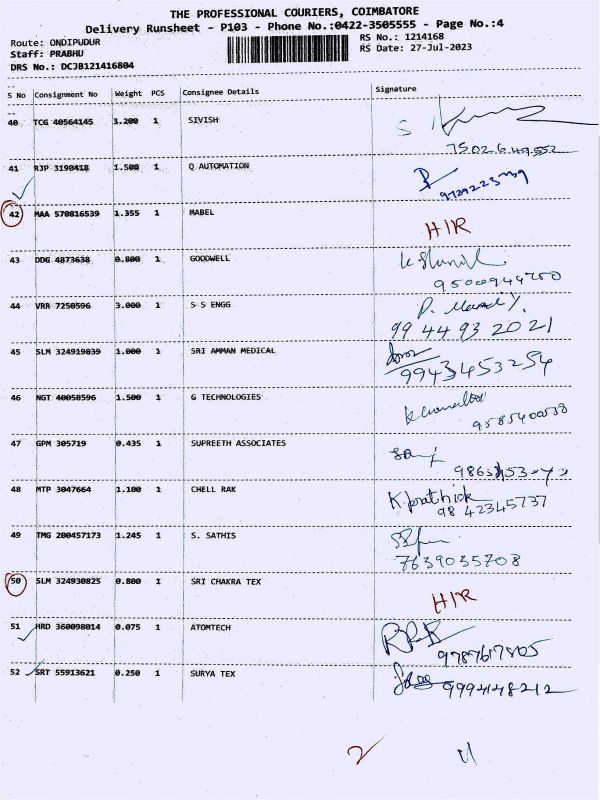 THE PROFESSIONAL COURIERS, COIMBATORE
Delivery Runsheet - P103 - Phone No.:0422-3505555 - Page No.:4
Route: ONDIPUDUR RS No.: 1214168
Staff: PRABHU RS Date: 27-Jul-2023
DRS No.: DCJB121416804
S No Consignment No Weight PCS Consignee Details Signature
40 TCG 40564145 3.200 1 SIVISH
7502649552
41 RJP 3190418 1.500 1 Q AUTOMATION
42 MAA 570816539 1.355 1 MABEL H/R
43 DDG 4873638 0.800 1 GOODWELL
9500949750
44 VRR 7250596 3.000 1 S S ENGG
99 44 93 2021
45 SLM 324919839 1.000 1 SRI AMMAN MEDICAL
9943453254
46 NGT 40058596 1.500 1 G TECHNOLOGIES
9585400538
47 GPM 305719 0.435 1 SUPREETH ASSOCIATES
48 MTP 3047664 1.100 1 CHELL RAK K.prathick
98 42345737
49 TMG 200457173 1.245 1 S. SATHIS
7639035708
50 SLM 324930825 0.800 1 SRI CHAKRA TEX H/R
51 HRD 360098014 0.075 1 ATOMTECH
9787617805
52 SRT 55913621 0.250 1 SURYA TEX
9994148212
2 11